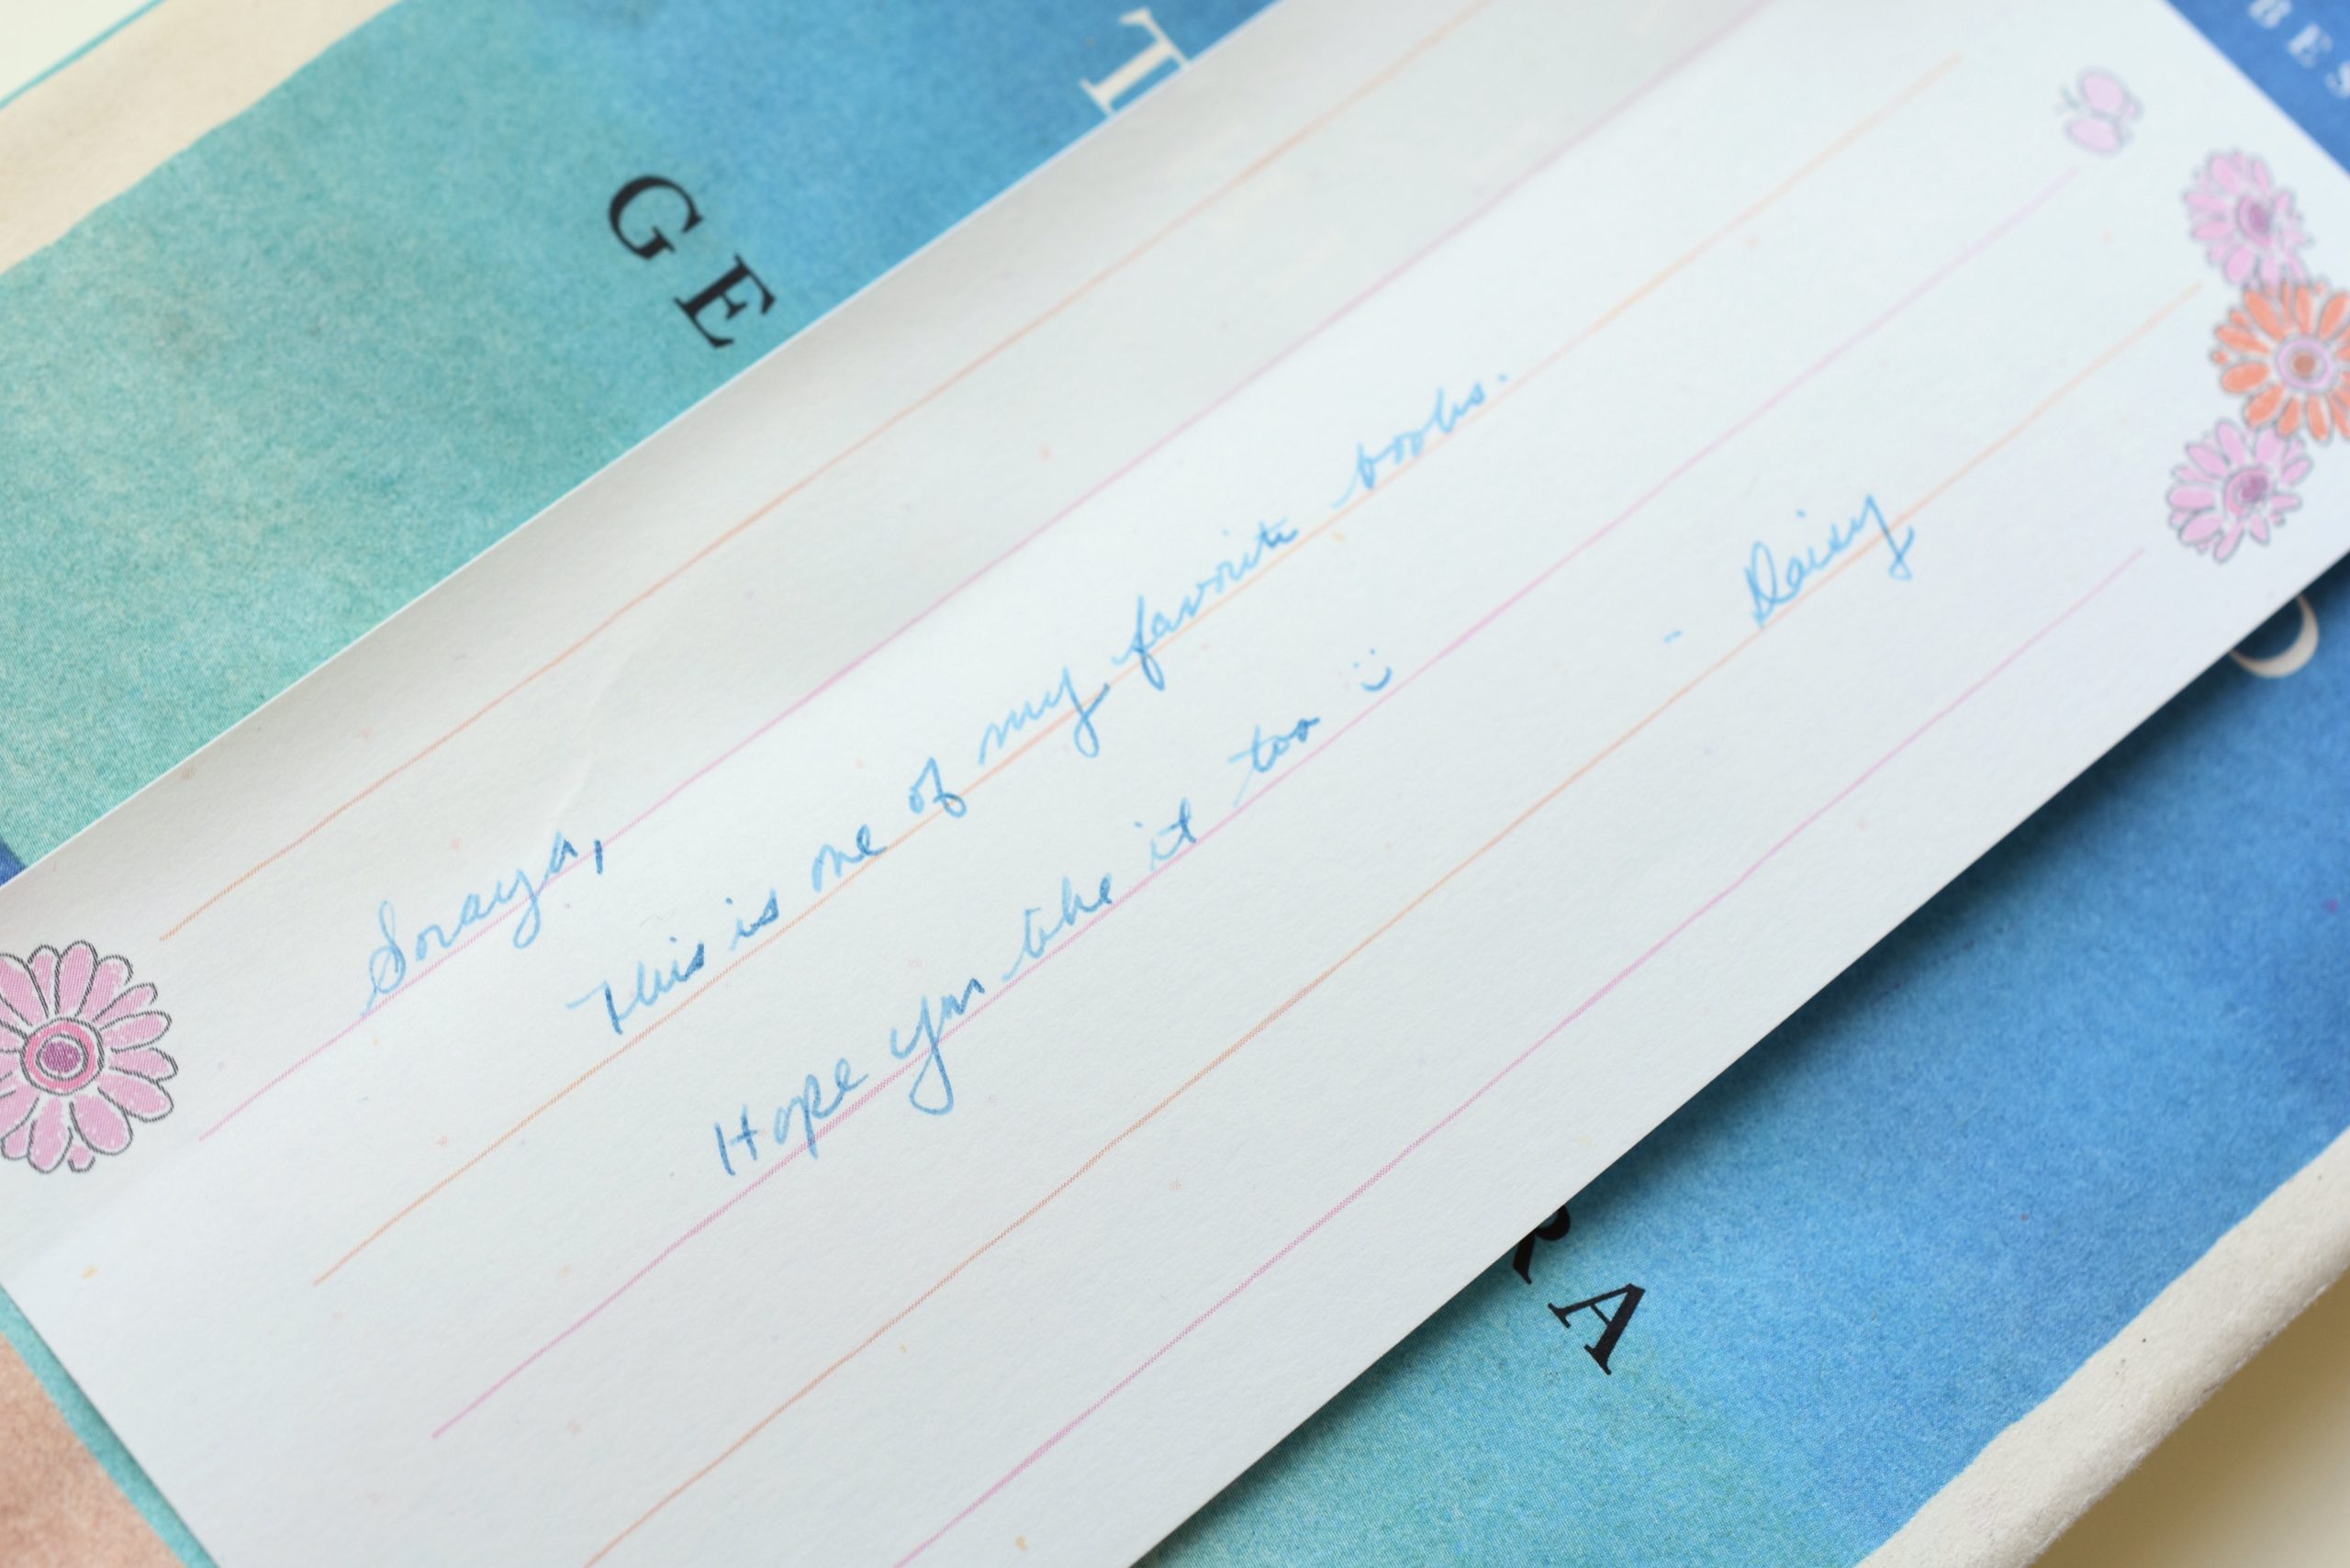 Soraya,
This is one of my favorite books.
Hope you like it too :)
- Daisy
GE
RA
BES